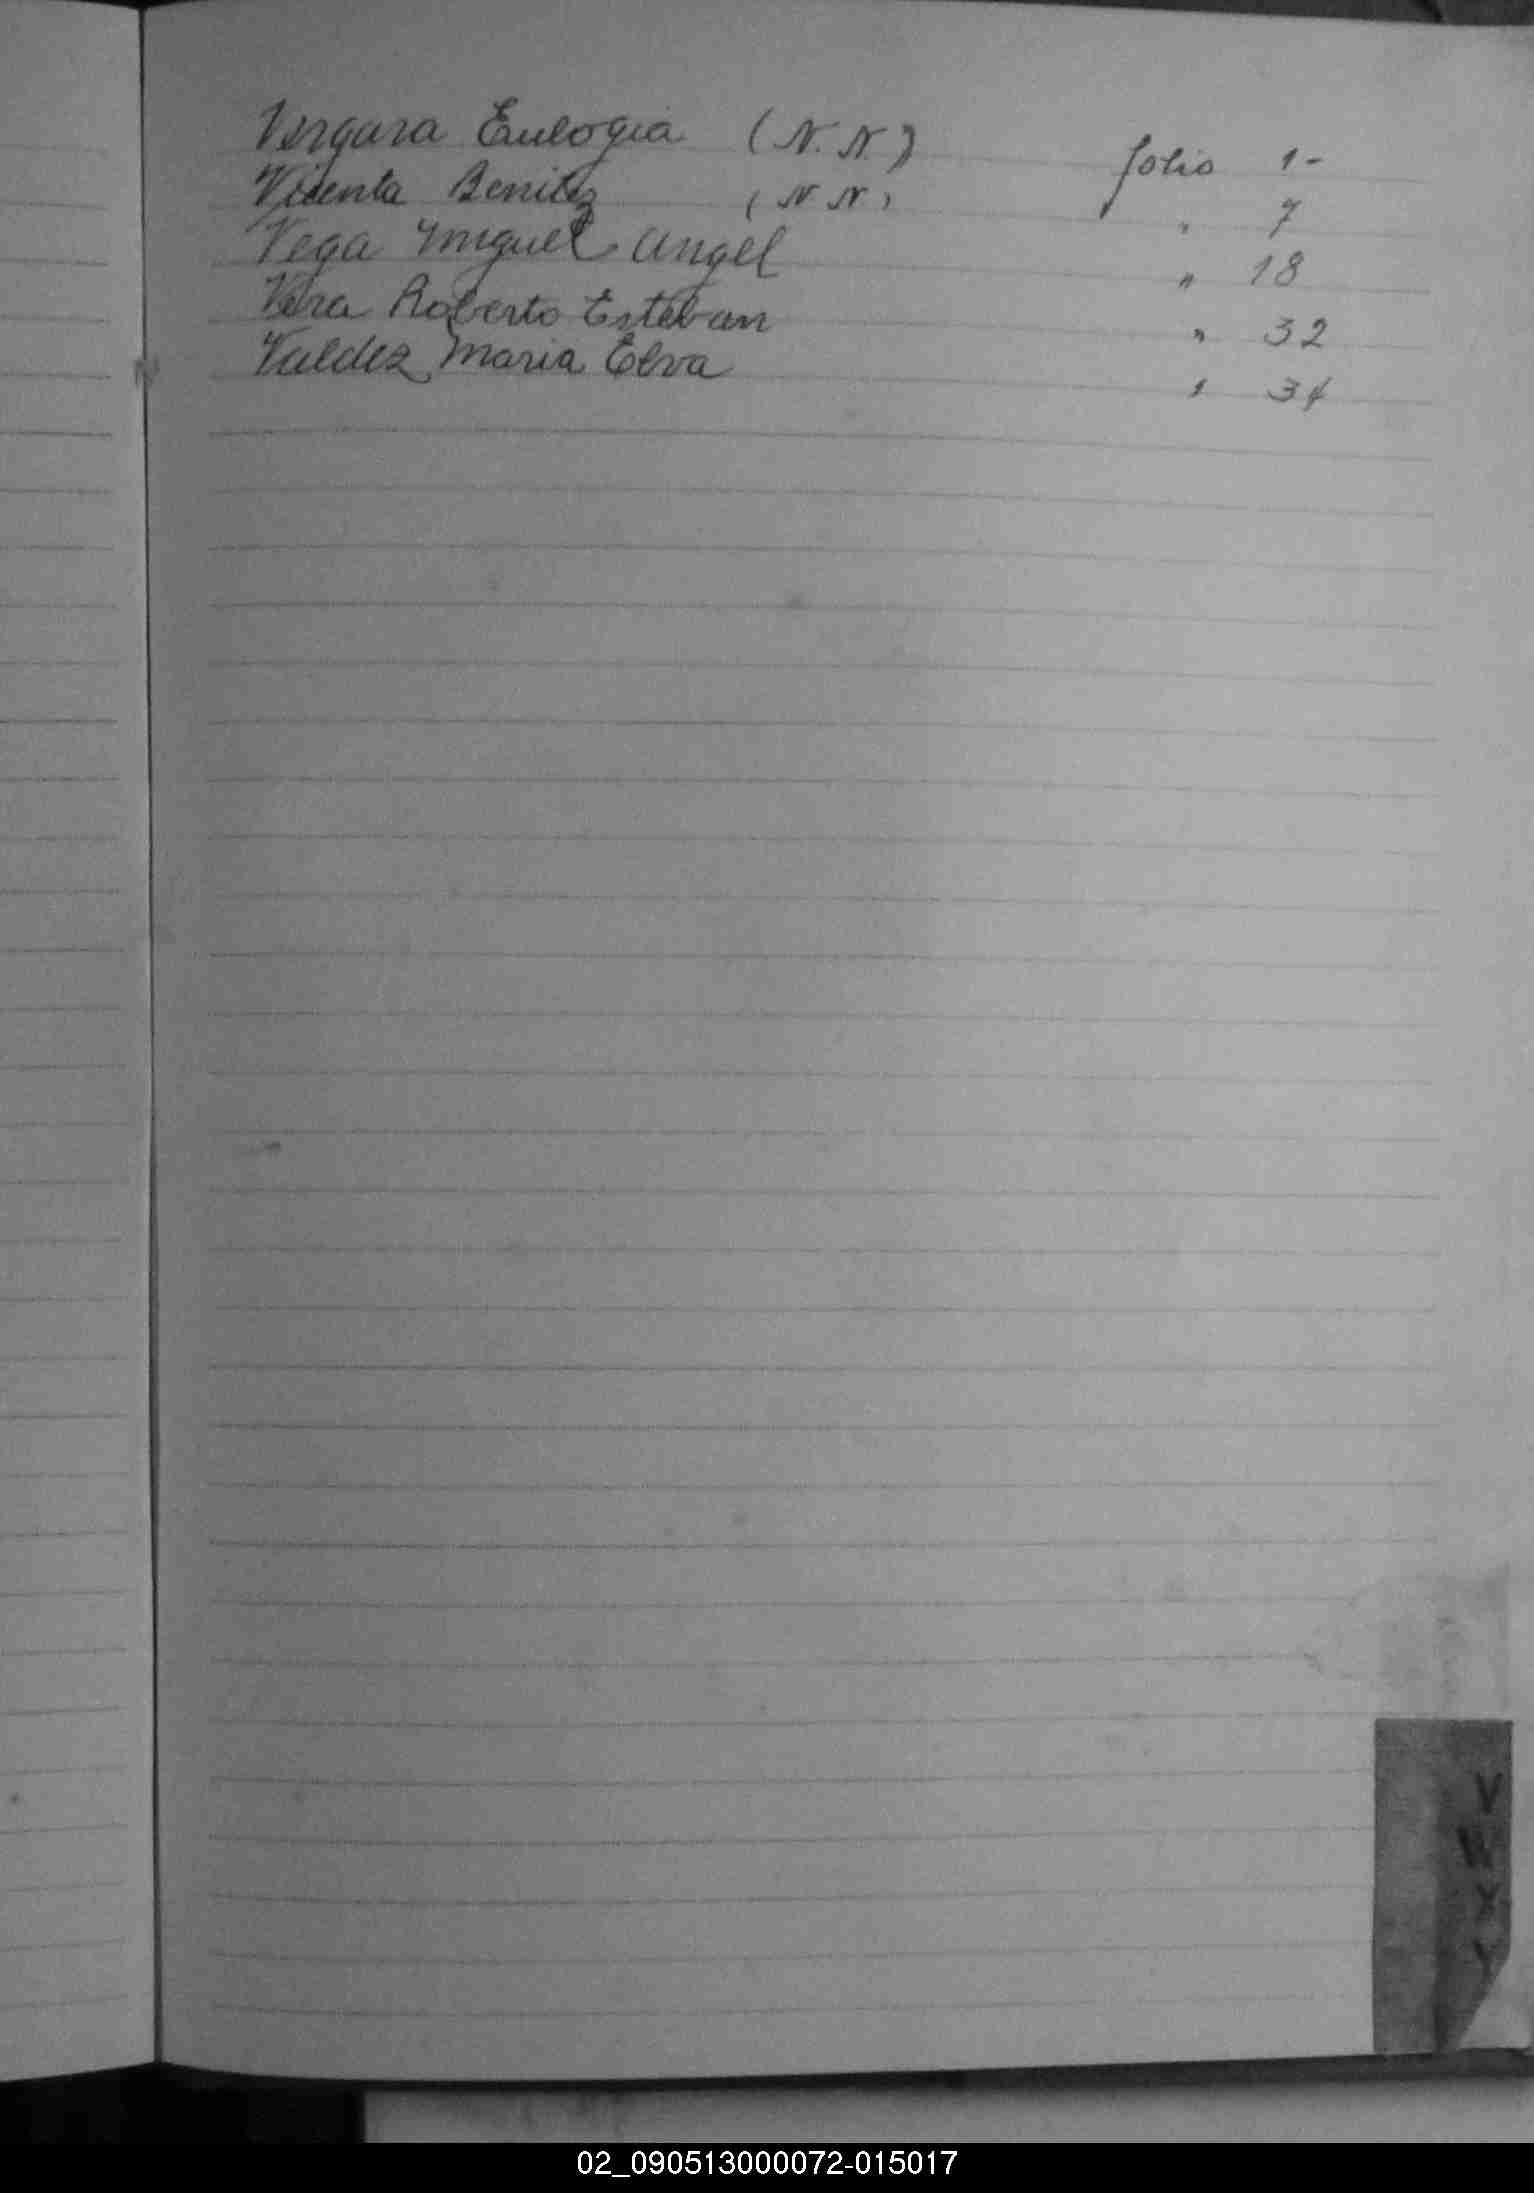 Vergara Eulogia (N.N.) folio 1-
Vicenta Benitez (N N) " 7
Vega Miguel Angel " 18
Vera Roberto Esteban " 32
Valdez Maria Elva " 34
V
W
X
Y
02_090513000072-015017